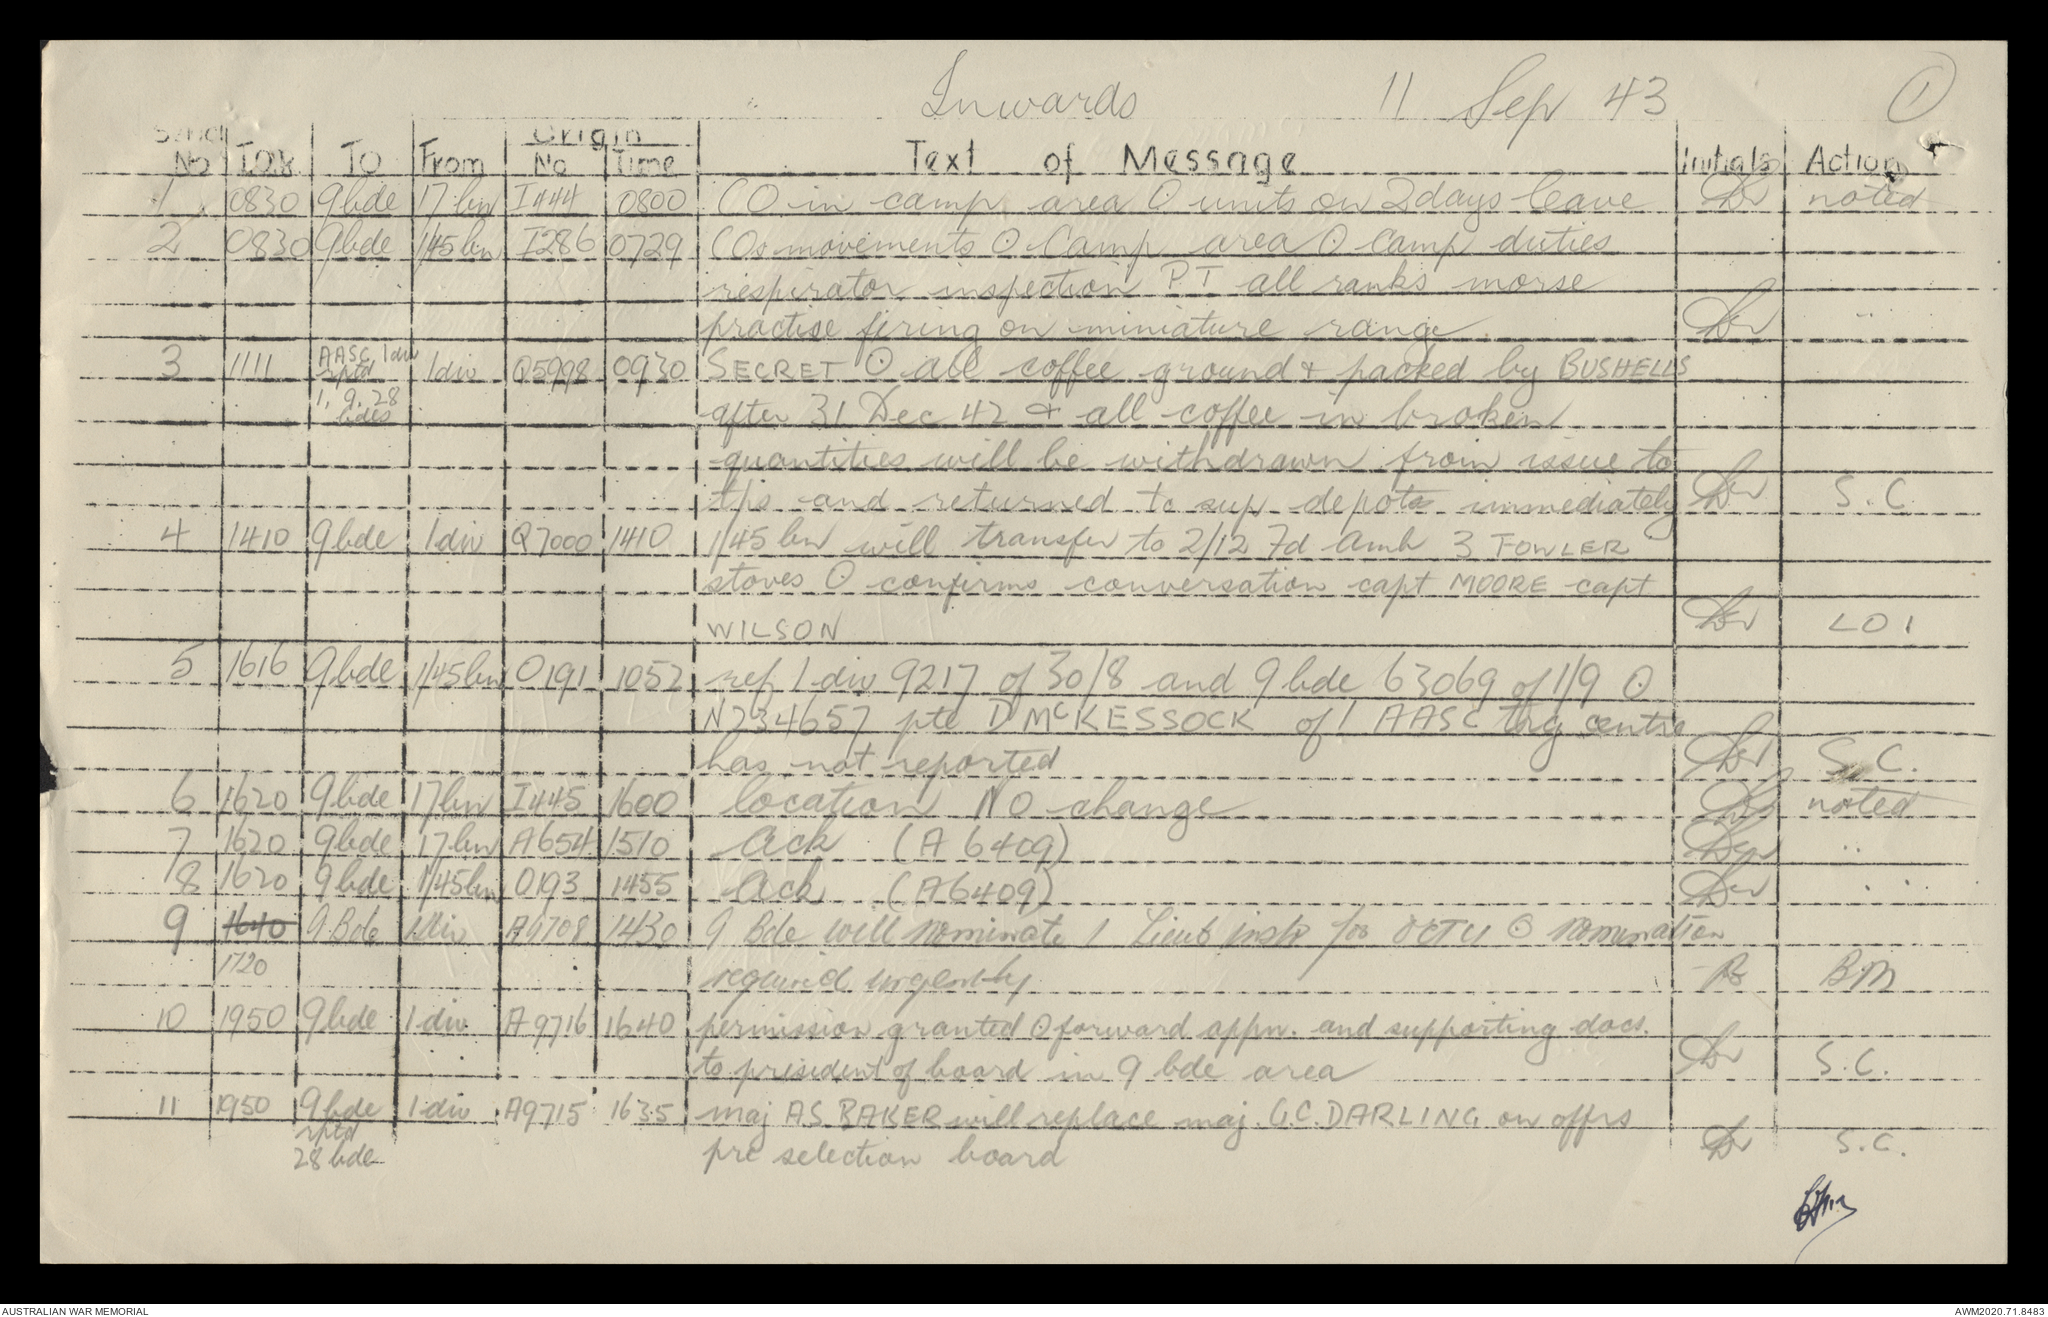 Inwards 11 Sep 43 1
Serial Origin
No TOR To From No Time Text of Message Initials Action
1 0830 9 bde 17 bn I444 0800 CO in camp area ⊙ units on 2 days leave noted
2 0830 9 bde 1/45 bn I286 0729 COs movements ⊙ Camp area ⊙ Camp duties
respirator inspection P.T all ranks morse
practise firing on miniature range. "
3 1111 AASC 1 div 1 div Q5998 0930 SECRET ⊙ all coffee ground & packed by BUSHELLS
rptd
1, 9, 28 after 31 Dec 42 & all coffee in broken
bdes
quantities will be withdrawn from issue to
tps and returned to sup depots immediately S.C
4 1410 9 bde 1 div Q7000 1410 1/45 bn will transfer to 2/12 Fd Amb 3 FOWLER
stoves ⊙ confirms conversation capt MOORE capt
WILSON LO 1
5 1616 9 bde 1/45 bn O191 1052 ref 1 div 9217 of 30/8 and 9 bde 63069 of 1/9 ⊙
N234657 pte D McKESSOCK of 1 AASC trg centre
has not reported S.C.
6 1620 9 bde 17 bn I445 1600 location NO change noted
7 1620 9 bde 17 bn A654 1510 Ack (A 6409) "
8 1620 9 bde 1/45 bn O193 1455 Ack (A6409) "
9 1640 9 Bde 1 div A9708 1430 9 Bde will nominate 1 Lieut instr for OCTU ⊙ nomination
1720 required urgently BM
10 1950 9 bde 1 div A9716 1640 permission granted ⊙ forward appn. and supporting docs.
to president of board in 9 bde area S.C.
11 1950 9 bde 1 div A9715 1635 maj A.S. BAKER will replace maj. G.C. DARLING on offrs
rptd
28 bde pre selection board S.C.
AUSTRALIAN WAR MEMORIAL AWM2020.71.8483